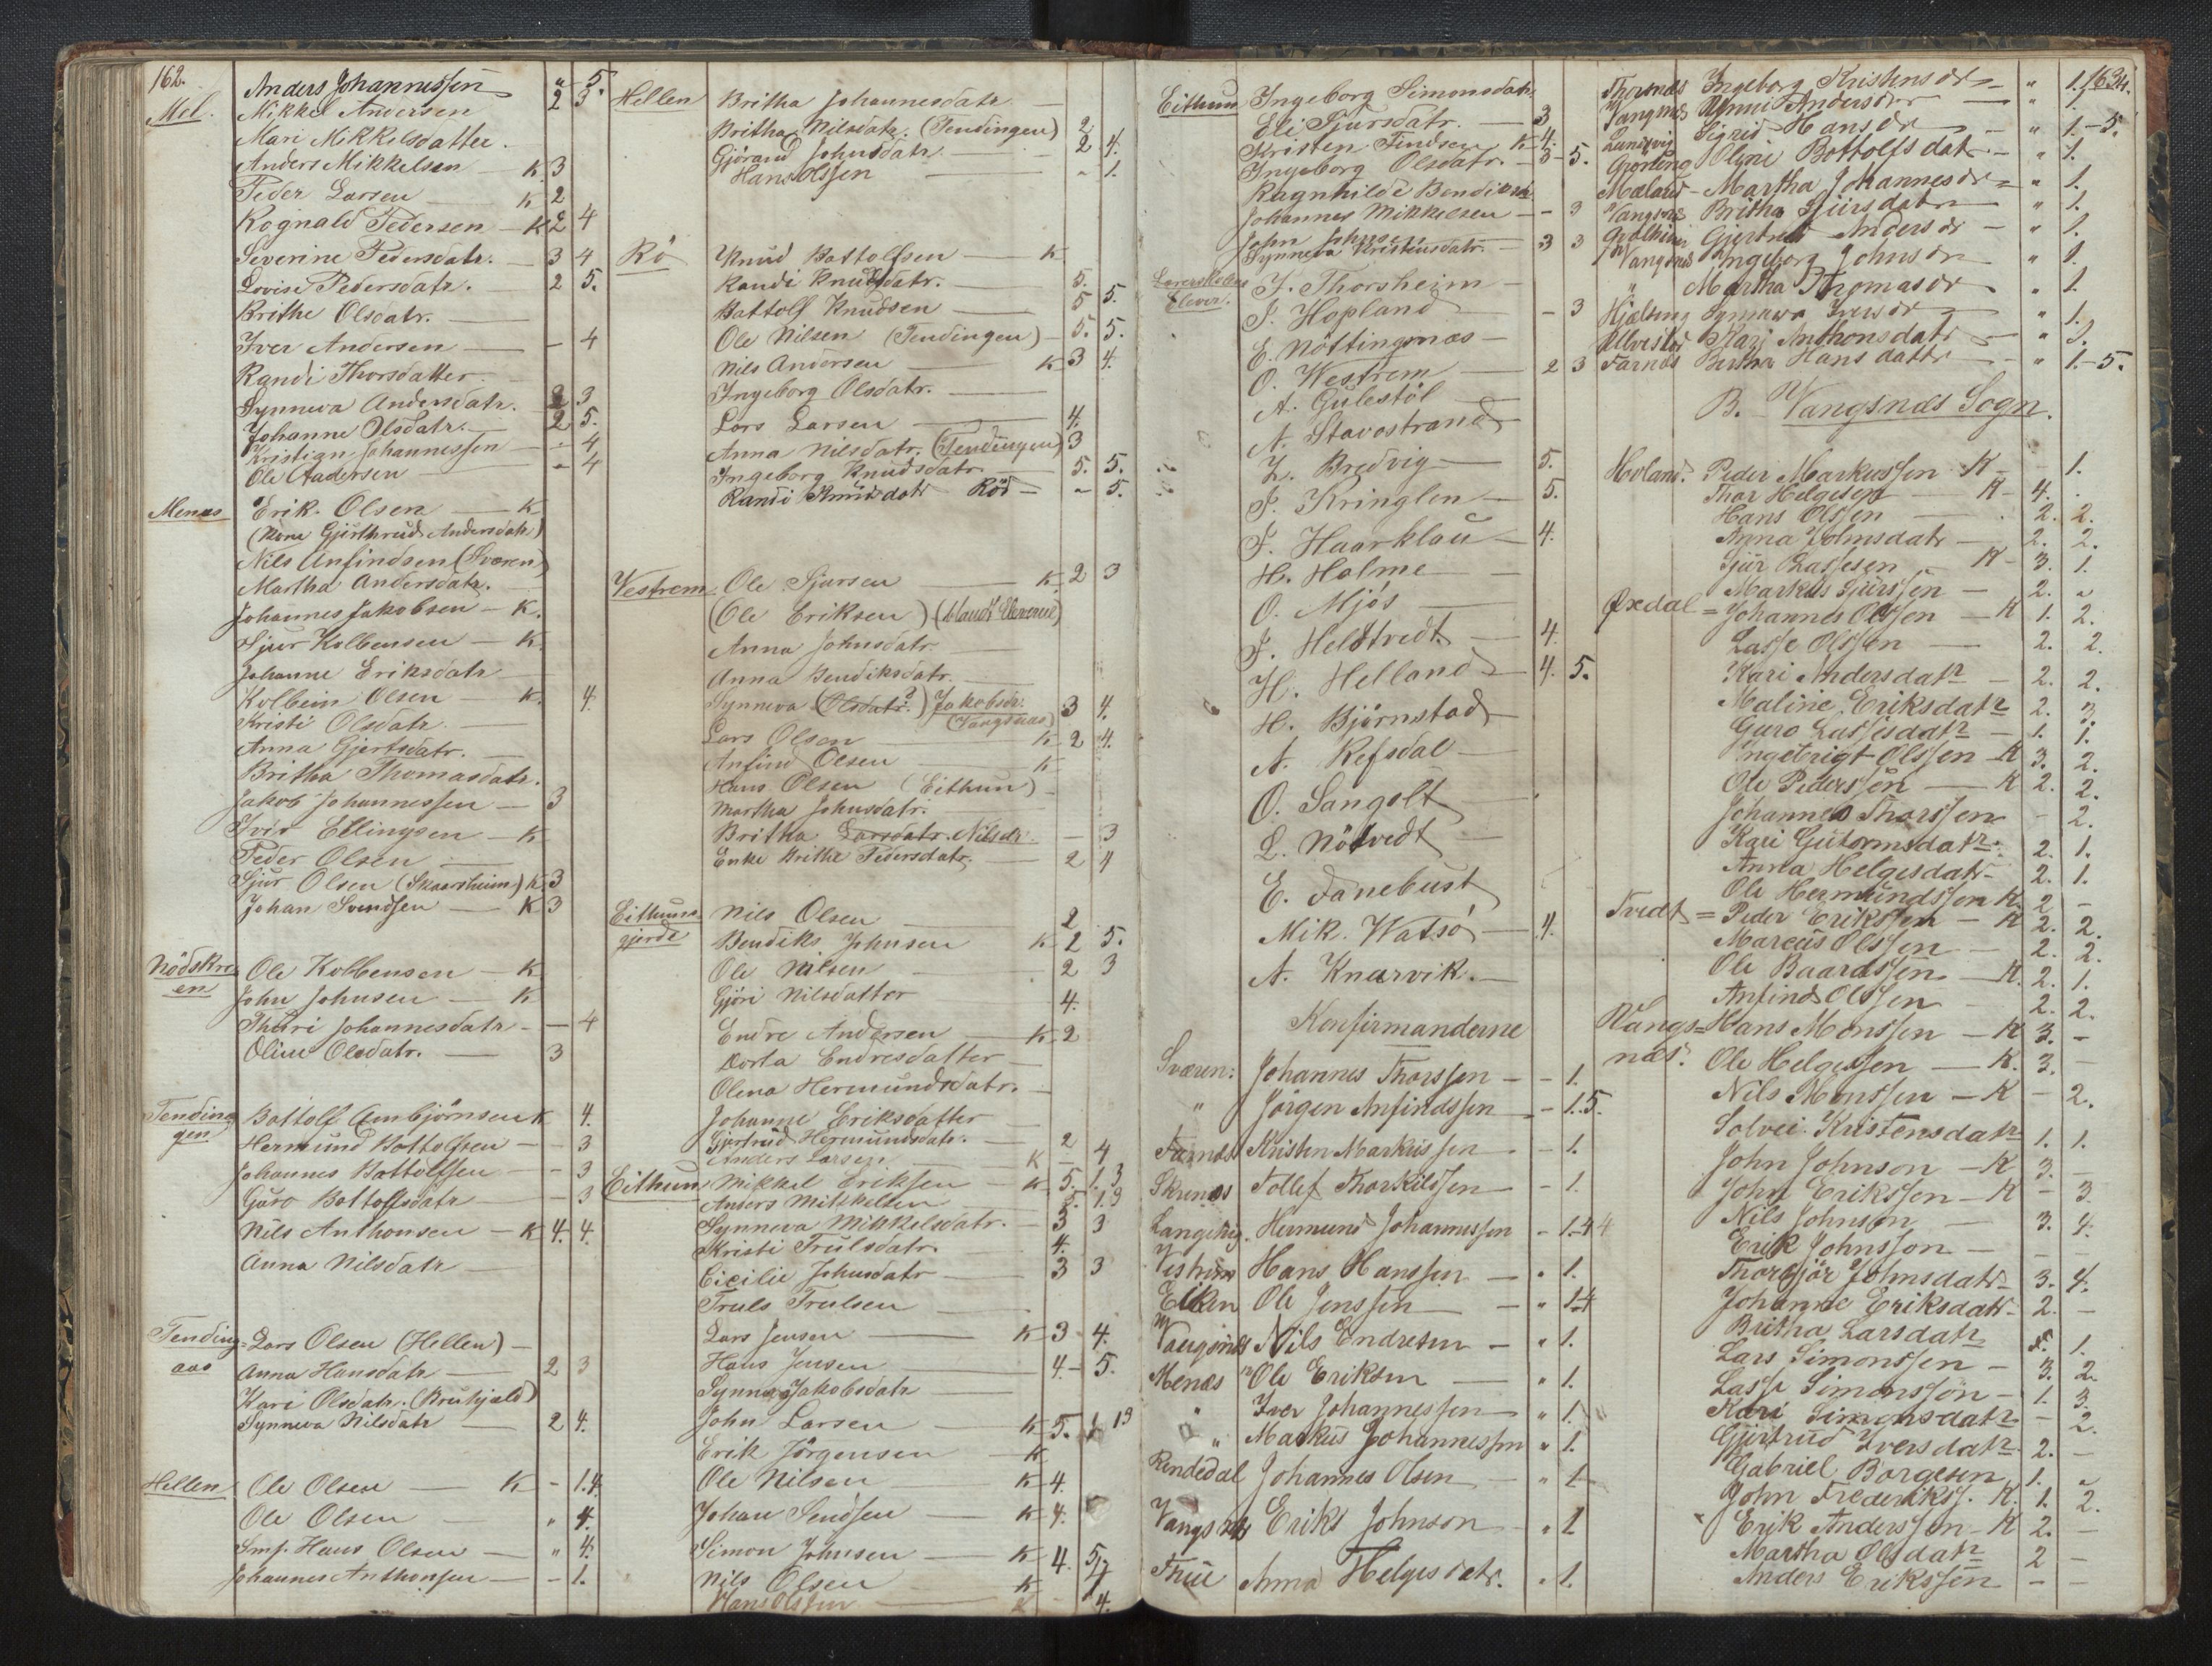 162.
Mel.
Anders Johannessen " 5.
Mikkel Andersen 2 3
Mari Mikkelsdatter.
Anders Mikkelsen — K. 3
Peder Larsen — K 2
Rognald Pedersen — K 2 4
Severine Pedersdatr. — 3 4
Lovise Pedersdatr. — 2 5.
Brithe Olsdatr. —
Iver Andersen — - 4
Randi Thorsdatter.
Synneva Andersdatr. 2 3
Johanne Olsdatr. — 2 5.
Kristian Johannessen — - 4
Ole Andersen — - 4
Menæs Erik Olsen — K
(Kone Gjerthrud Andersdatr)
Nils Anfindsen (Sværen)
Martha Andersdatr. —
Johannes Jakobsen — K.
Sjur Kolbensen — K.
Johanne Eriksdatr
Kolbein Olsen — K. 4.
Kristi Olsdatr. —
Anna Gjertsdatr. —
Britha Thomasdatr.
Jakob Johannessen — 3
Iver Ellingsen — K
Peder Olsen —
Sjur Olsen (Skaasheim) K. 3
Johan Svendsen — K 3
Nödskreen Ole Kolbensen — K
John Johnsen — K
Thuri Johannesdatr — — 4
Oline Olsdatr. — 3
Tendingen Bottolf Ambjörnsen K 4.
Hermund Bottolfsen — - 3
Johannes Bottolfsen — - 3
Guro Bottolfsdatr — - 3
Nils Anthonsen — K 4. 4.
Anna Nilsdatr —
Tendingaas Lars Olsen (Hellen) —
Anna Hansdatr — 2 3
Kari Olsdatr.
Synneva Nilsdatr — 2 4.
Hellen Ole Olsen — K - 1.4.
Ole Olsen — " 4.
Smf. Hans Olsen — " 4.
Johannes Anthonsen — - 1.
Hellen Britha Johannesdatr —
Britha Nilsdatr. (Tendingen) 2
Gjörand Johnsdatr — 2 4.
Hans Olssen — - 1.
Rö Knud Bottolfsen — K
Randi Knudsdatr. — 5.
Bottolf Knudsen — 5 5.
Ole Nilsen (Tendingen) — 5. 5.
Nils Andersen — K 3 4.
Ingeborg Olsdatr. —
Lars Larsen — 4.
Anna Nilsdatr. (Tendingen) 3
Ingeborg Knudsdatr — 5. 5.
Randi Knudsdatr Röd — - 5.
Vestrem Ole Sjursen — K. 2 3
(Ole Eriksen)
Anna Johnsdatr. —
Anna Bendiksdatr. —
Synneva (Olsdatr?) Jakobsdr. 3 4.
(Vangsnæs)
Lars Olsen — K 2 4.
Anfind Olsen — K
Hans Olsen (Eithun) —
Martha Johnsdatr. —
Britha Larsdatr. Nilsdr. — 3
Enke Brithe Pedersdatr. — 2 4
Eithunsgjerde Nils Olsen — 2
Bendiks Johnsen K 2 5.
Ole Nilsen — 2 3
Gjöri Nilsdatter 4.
Endre Andersen — K 2
Dorta Endresdatter —
Olena Hermundsdatr. —
Johanne Eriksdatter
Gjertrud Hermundsdatr. — 2
Anders Larsen — K — 4
Eithun Mikkel Eriksen — K 5. 1.3
Anders Mikkelsen 5. 1.3
Synneva Mikkelsdatr. — 3 3
Kristi Trulsdatr. 4.
Cicilie Johnsdatr — 3 3
Truls Trulsen —
Lars Jensen — K 3 4.
Hans Jensen — 4- 5.
Synneva Jakobsdatr —
John Larsen — K 5. 1 13
Erik Jörgensen — K
Ole Nilsen — K 4.
Johan Sendsen — K 4.
Simon Johnsen — K 4. 5
Nils Olsen — K
Hans Olssen — 4.
Eithun Ingeborg Simonsdatr.
Eli Sjursdatr. — 3
Kristen Findsen K 4.
Ingeborg Olsdatr. — 3 - 5.
Ragnhilde Bendiksdr
Johannes Mikkelsen — - 3
John Johnsen
Synneva Kristensdatr. — 3 3
Lærerskolens Elever. J. Thorsheim —
J. Hopland — - 3
E. Nöttingnæs —
O. Westrem — 2 3
A. Gulestöl —
A. Stavostrand
L. Bredvig — 5.
J. Kringlen — 5.
J. Haarklau — 4.
H. Holme —
O. Mjös —
J. Heldtvedt — 4.
H. Helland — 4. 5.
H. Björnstad
A. Refsdal —
O. Sangolt
L. Nötvedt —
E. Fanebust
Mik. Watsö — 4.
A. Knarvik. —
Konfirmanderne
Sværen: Johannes Thorssen — - 1.
" Jörgen Anfindssen — - 1. 5.
Farnæs Kristen Markussen — 1.
Skrenæs Tollef Thorkilssen — - 1.
Hermund Johannessen - 1-4 4
Vestrem Hans Hanssen — " 1.
Eiken Ole Jenssen — " 1.4
Vangsnæs Nils Endresen — " 1.
Menæs Ole Eriksen — " 1.
" Iver Johannessen " 1.
" Markus Johannessen " 1.
Rendedal Johannes Olsen — " 1
Vangsnæs Eriks Johnson — " 1
Anna Helgesdatr. " 1.
163
Ingeborg Kristensdr — " 1.
Vangsnæs Unni Andersdr — " 1.
Sigrid Hansdr — " 1. - 5.
Oline Bottolfsdatr. — " 1.
Mæland Martha Johannesdr — " 1.
Vangsnæs Britha Sjursdatr " 1.
Gjertrud Andersdr — " 1.
Vangsnæs Ingeborg Johnsdr " 1.
" Martha Thomasdr " 1.
Synneva Iversdr — " 1.
Kari Anthonsdatr — " 1.
Farnæs Britha Hansdattr — " 1. - 5.
B. Vangsnæs Sogn.
Hovland. Peder Markussen K — 1.
Thor Helgesen — K - 4.
Hans Olssen — 2. 2.
Anna Johnsdatr — 2. 2.
Sjur Lassesen — K - 3. 1.
Markus Sjurssen — 2. "
Øxdal = Johannes Olssen — K 1. 2.
Lasse Olssen — 2. 2.
Kari Andersdatr — 2. 2.
Maline Eriksdatr 2. 3.
Guro Lassesdatr — 1. 1.
Ingebrigt Olssen — K 3. 2.
Ole Pederssen — K 2. 2.
Johannes Thorssen - 2.
Kari Gutormsdatr. 2. 1.
Anna Helgesdatr — 2. 1.
Ole Hermundssen K. 2 -
Tvedt = Peder Erikssen — K 2. 2.
Marcus Olssen — 2. 2.
Ole Baardssen — K. 2. 1.
Anfind Olssen - 2. 2.
Vangsnæs. Hans Monssen — K 3. -
Ole Helgessen — K. 3. -
Nils Monssen — K - 2.
Solvei Kristensdatr 1. 1.
John Johnson — K 3. -
John Erikssen — K - 3.
Nils Johnson — 3. 4.
Erik Johnsson — - -
Thorbjör Johnsdatr 3. 4.
Johanne Eriksdatr 2. -
Britha Larsdatr 1.
Lars Simonssen — 3. 2.
Lasse Simonssön — 1. 3.
Kari Simonsdatr - 2.
Gjertrud Iversdatr 2. -
Gabriel Borgesen 1. "
John Frederikss. K. 1. 2.
Erik Anderssen — K 2. -
Martha Olsdatr 2 -
Anders Erikssen - -